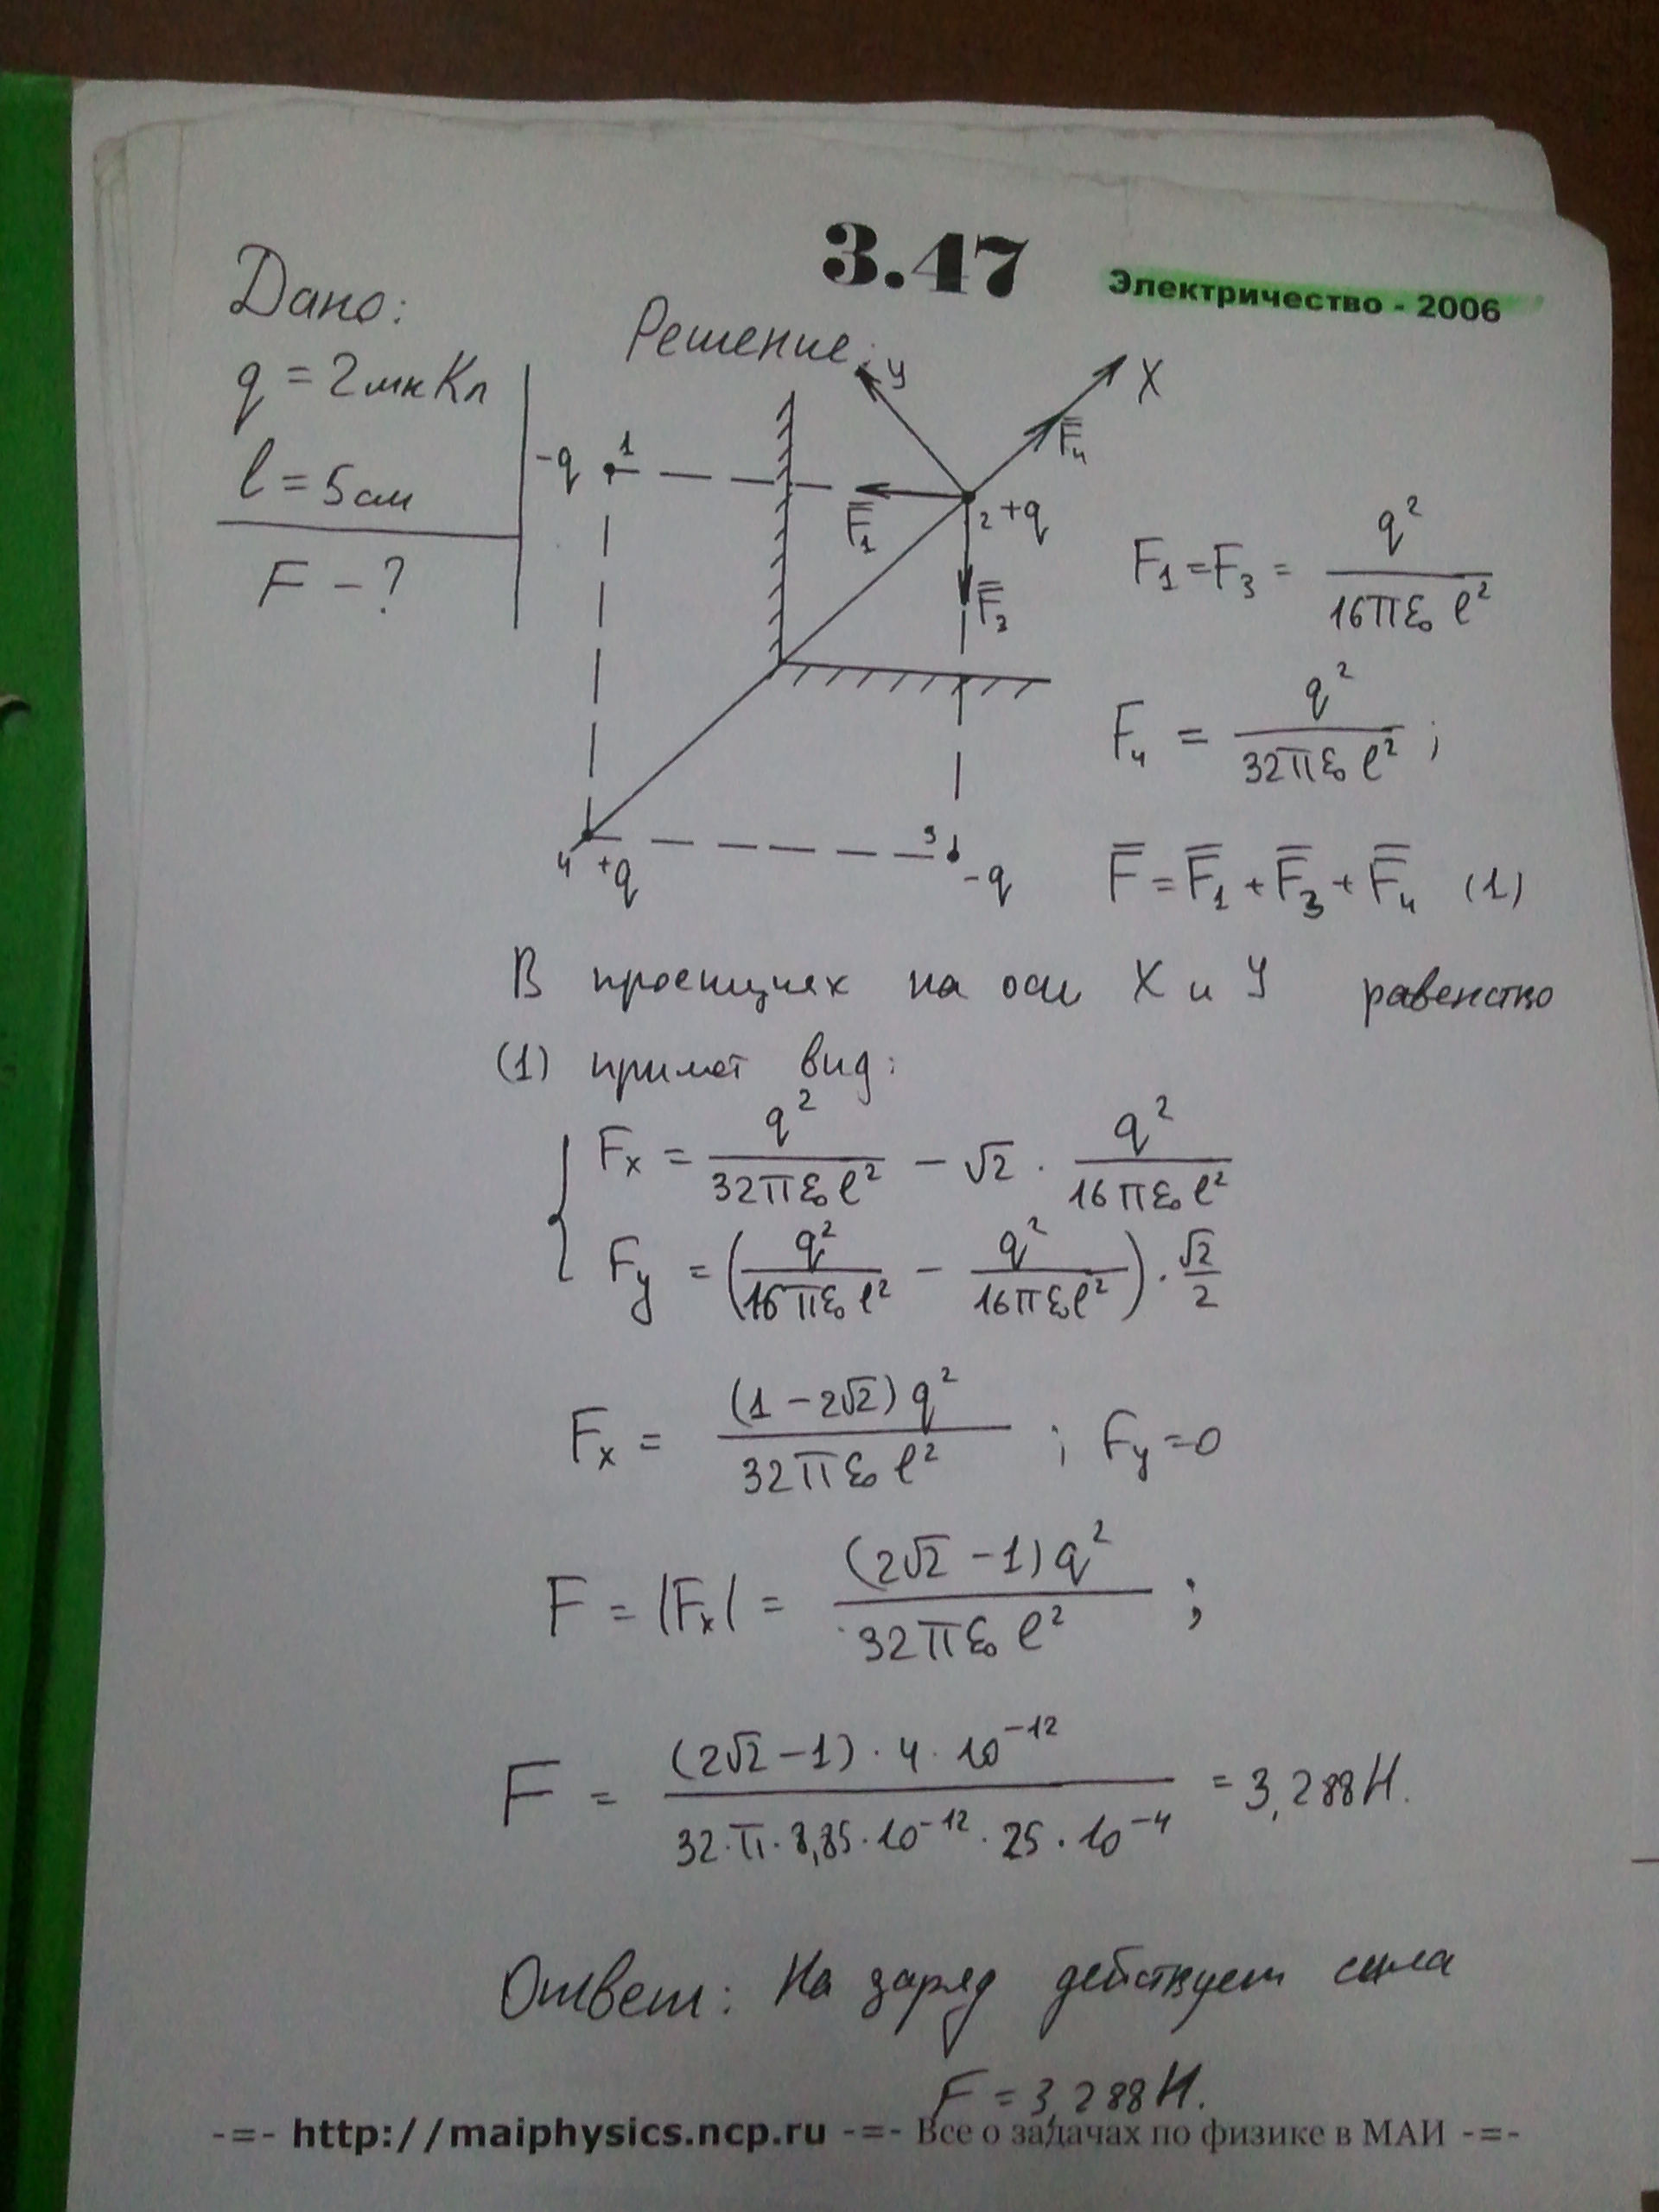 3.47
Электричество - 2006
Дано:
q = 2мкКл
l = 5см
F - ?
Решение:
y
X
-q
1
F̄₁
F̄₄
2 +q
F̄₃
4 +q
3
-q
F₁ = F₃ = q² / 16πε₀ l²
F₄ = q² / 32πε₀ l² ;
F̄ = F̄₁ + F̄₃ + F̄₄ (1)
В проекциях на оси X и Y равенство
(1) примет вид:
Fx = q² / 32πε₀ l² - √2 · q² / 16πε₀ l²
Fy = (q² / 16πε₀ l² - q² / 16πε₀ l²) · √2 / 2
Fx = (1 - 2√2) q² / 32πε₀ l² ; Fy = 0
F = |Fx| = (2√2 - 1) q² / 32πε₀ l² ;
F = (2√2 - 1) · 4 · 10⁻¹² / 32 · π · 8,85 · 10⁻¹² · 25 · 10⁻⁴ = 3,288 Н.
Ответ: На заряд действует сила
F = 3,288 Н.
-=- http://maiphysics.ncp.ru -=- Все о задачах по физике в МАИ -=-